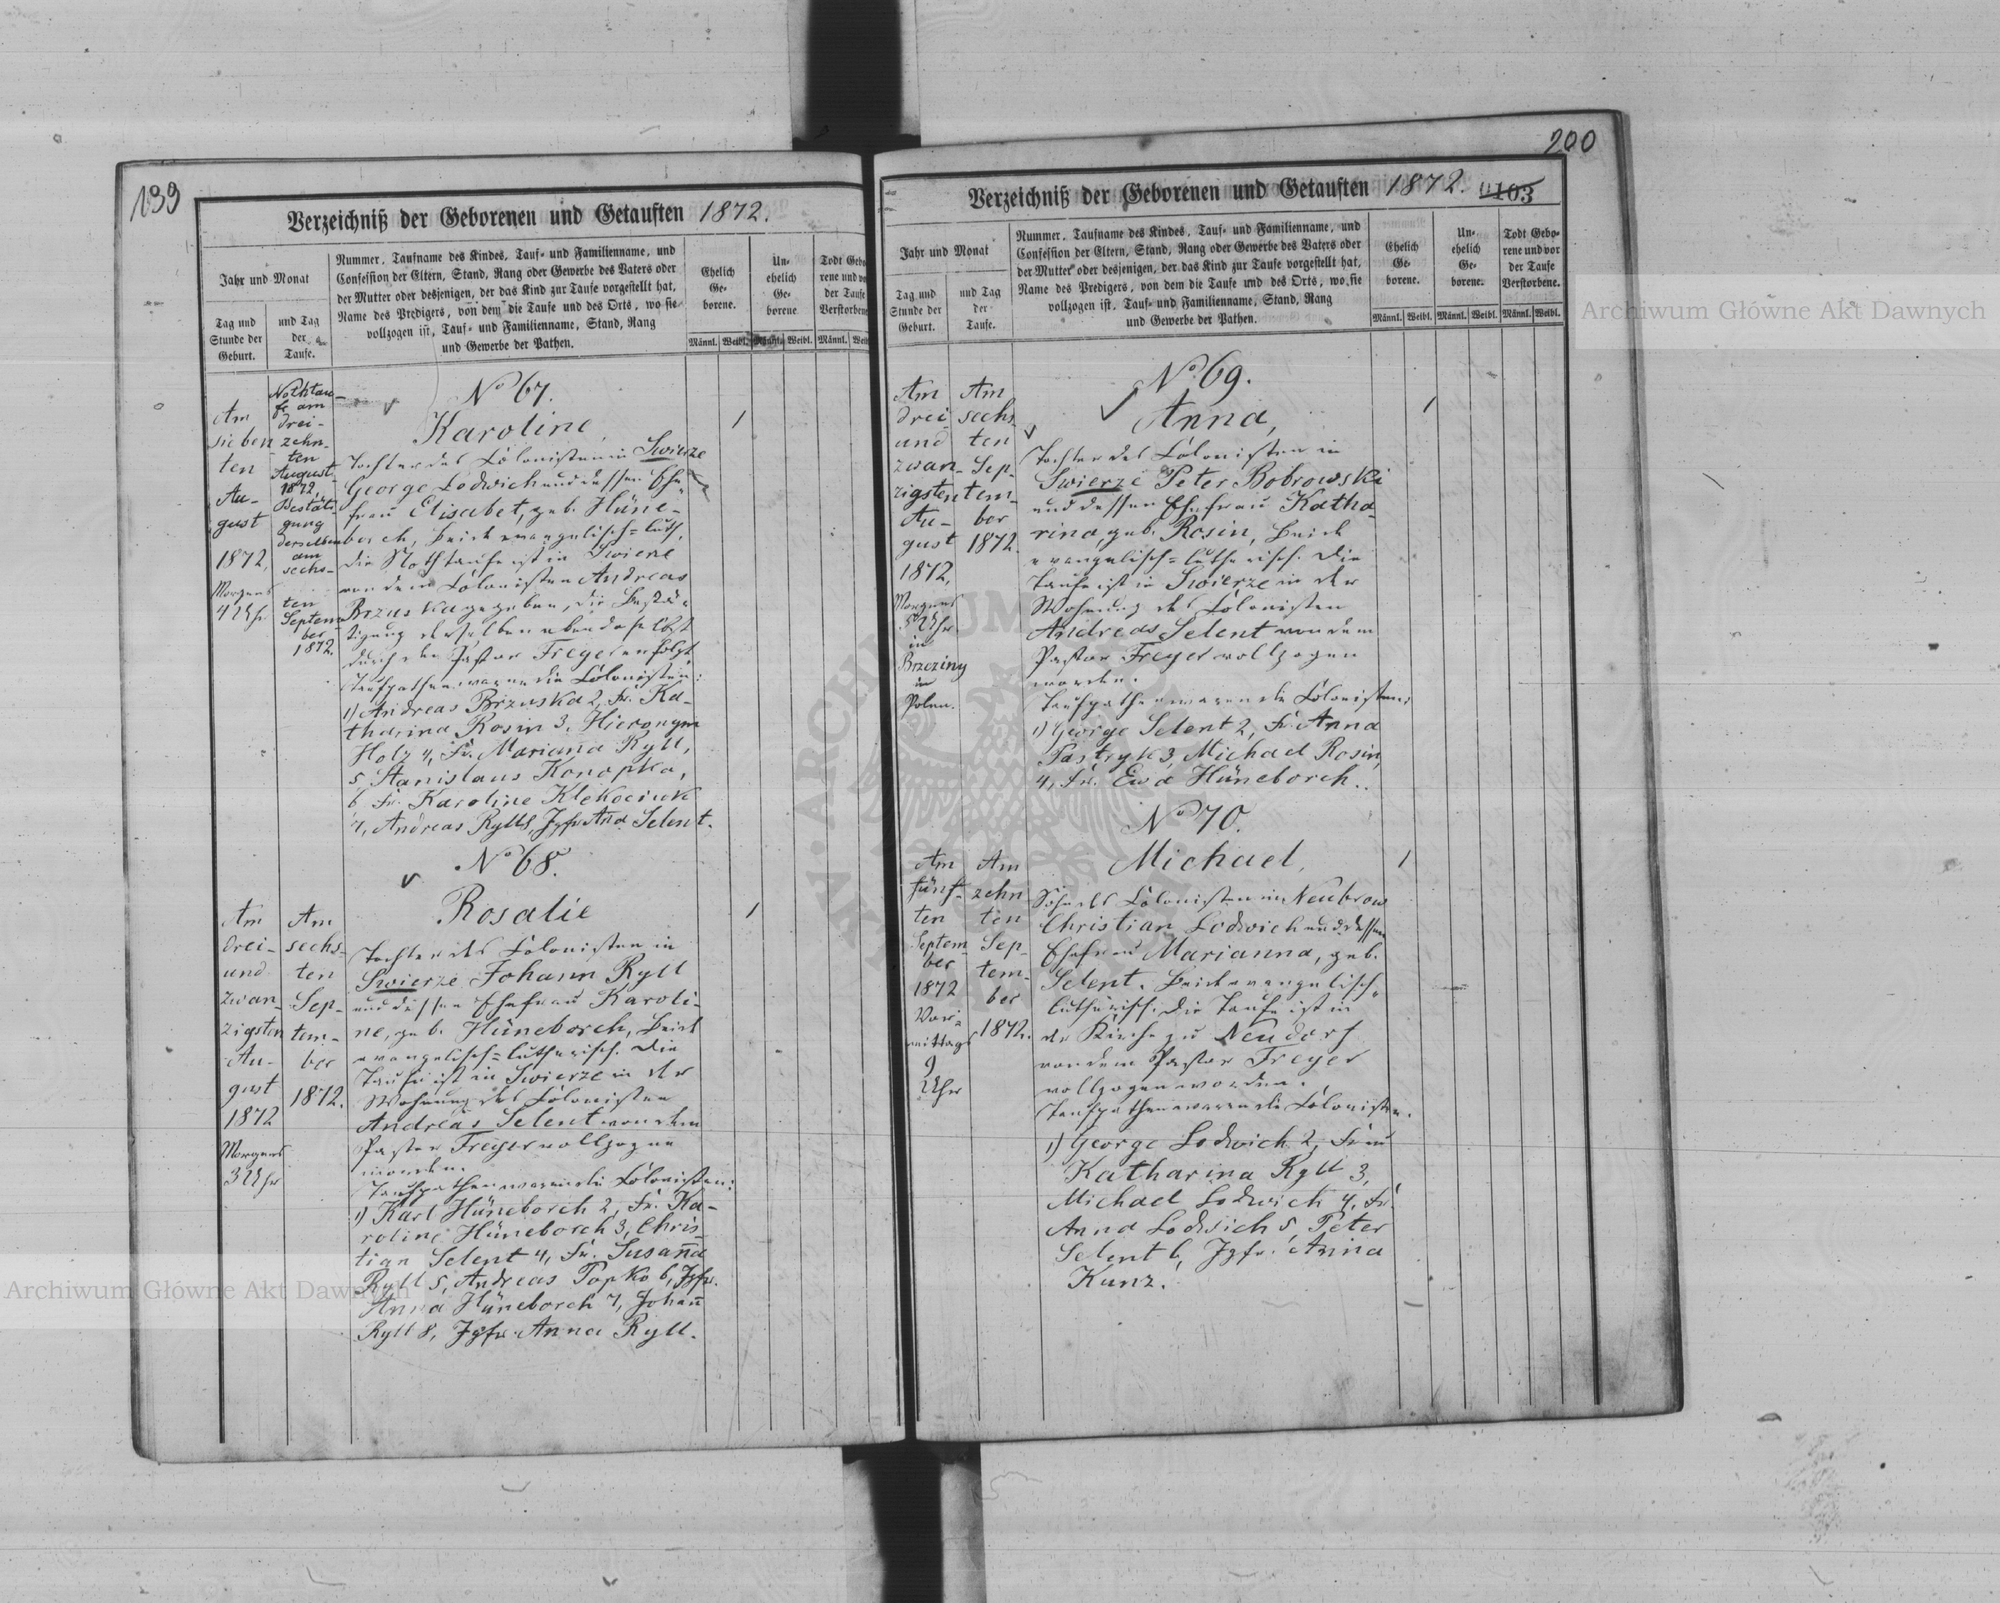 199
Verzeichniß der Geborenen und Getauften 1872.
Jahr und Monat
Tag und
Stunde der
Geburt.
und Tag
der
Taufe.
Nummer, Taufname des Kindes, Tauf- und Familienname, und
Confession der Eltern, Stand, Rang oder Gewerbe des Vaters oder
der Mutter oder desjenigen, der das Kind zur Taufe vorgestellt hat,
Name des Predigers, von dem die Taufe und des Orts, wo sie
vollzogen ist, Tauf- und Familienname, Stand, Rang
und Gewerbe der Pathen.
Ehelich
Ge-
borene.
Un-
ehelich
Ge-
borene
Todt Gebo
rene und vo
der Taufe
Verstorbene
Männl. Weibl. Männl. Weibl. Männl. Wei
Am
sieben
ten
Au-
gust
1872,
Morgens
4 Uhr
Nothtau-
fe am
drei-
zehn-
ten
August
1872,
Bestäti-
gung
derselben
am
sechs-
ten
Septem-
ber
1872.
No 67.
Karoline,
Tochter des Kolonisten in Swierze
George Lodwich und dessen Ehe-
frau Elisabet, geb. Hüne-
borch, Beide evangelisch-luth.
die Nothtaufe ist in Swierze
von dem Kolonisten Andreas
Brzuska gegeben, die Bestä-
tigung derselben ebendaselbst
durch den Pastor Freyer erfolgt
Taufpathen waren die Kolonisten:
1) Andreas Brzuska 2, Fr. Ka-
tharina Rosin 3, Hieronym
Holz 4, Fr. Mariana Ryll,
5 Stanislaus Konopka,
6 Fr. Karoline Klekociuk
7, Andreas Ryll 8, Jgfr Ana Selent.
No 68.
Rosalie
Am
drei-
und
zwan-
zigsten
Au-
gust
1872
Morgens
3 Uhr
Am
sechs-
ten
Sep-
tem-
ber
1872.
Tochter des Kolonisten in
Swierze Johann Ryll
und dessen Ehefrau Karoli-
ne, geb. Hüneborch, Beide
evangelisch-lutherisch. Die
Taufe ist in Swierze in der
Wohnung des Kolonisten
Andreas Selent von dem
Pastor Freyer vollzogen
worden.
Taufpathen waren die Kolonisten:
1) Karl Hüneborch 2, Fr. Ka-
roline Hüneborch 3, Chris-
tian Selent 4, Fr. Susana
Ryll 5, Andreas Popko 6, Jgfr.
Anna Hüneborch 7, Johan
Ryll 8, Jgfr. Anna Ryll.
200
Verzeichniß der Geborenen und Getauften 1872.
103
Jahr und Monat
Tag und
Stunde der
Geburt.
und Tag
der
Taufe.
Nummer, Taufname des Kindes, Tauf- und Familienname, und
Confession der Eltern, Stand, Rang oder Gewerbe des Vaters oder
der Mutter oder desjenigen, der das Kind zur Taufe vorgestellt hat,
Name des Predigers, von dem die Taufe und des Orts, wo sie
vollzogen ist, Tauf- und Familienname, Stand, Rang
und Gewerbe der Pathen.
Ehelich
Ge-
borene.
Un-
ehelich
Ge-
borene.
Todt Gebo-
rene und vor
der Taufe
Verstorbene.
Männl. Weibl. Männl. Weibl. Männl. Weibl.
Am
drei-
und
zwan-
zigsten
Au-
gust
1872,
Morgens
5 Uhr.
in
Brzeziny
in
Polen.
Am
sechs
ten
Sep-
tem-
ber
1872.
No 69.
Anna,
Tochter des Kolonisten in
Swierze Peter Bobrowski
und dessen Ehefrau Katha-
rina, geb. Rosin, Beide
evangelisch-lutherisch. Die
Taufe ist in Swierze in der
Wohnung des Kolonisten
Andreas Selent von dem
Pastor Freyer vollzogen
worden.
Taufpathen waren die Kolonisten:
1) George Selent 2, Fr. Anna
Pastryk 3, Michael Rosin,
4, Fr. Ewa Hüneborch.
No 70.
Michael,
Am
fünf-
ten
Septem-
ber
1872
Vor-
mittags
9
Uhr
Am
zehn
ten
Sep-
tem-
ber
1872.
Sohn des Kolonisten in Neubrow
Christian Lodwich und dessen
Ehefrau Marianna, geb.
Selent. Beide evangelisch-
lutherisch. Die Taufe ist in
der Kirche zu Neudorf
von dem Pastor Freyer
vollzogen worden.
Taufpathen waren die Kolonisten.
1) George Lodwich 2, Frau
Katharina Ryll 3,
Michael Lodwich 4, Fr.
Anna Lodwich 5, Peter
Selent 6, Jgfr. Anna
Kunz.
Archiwum Główne Akt Dawnych
Archiwum Główne Akt Dawnych